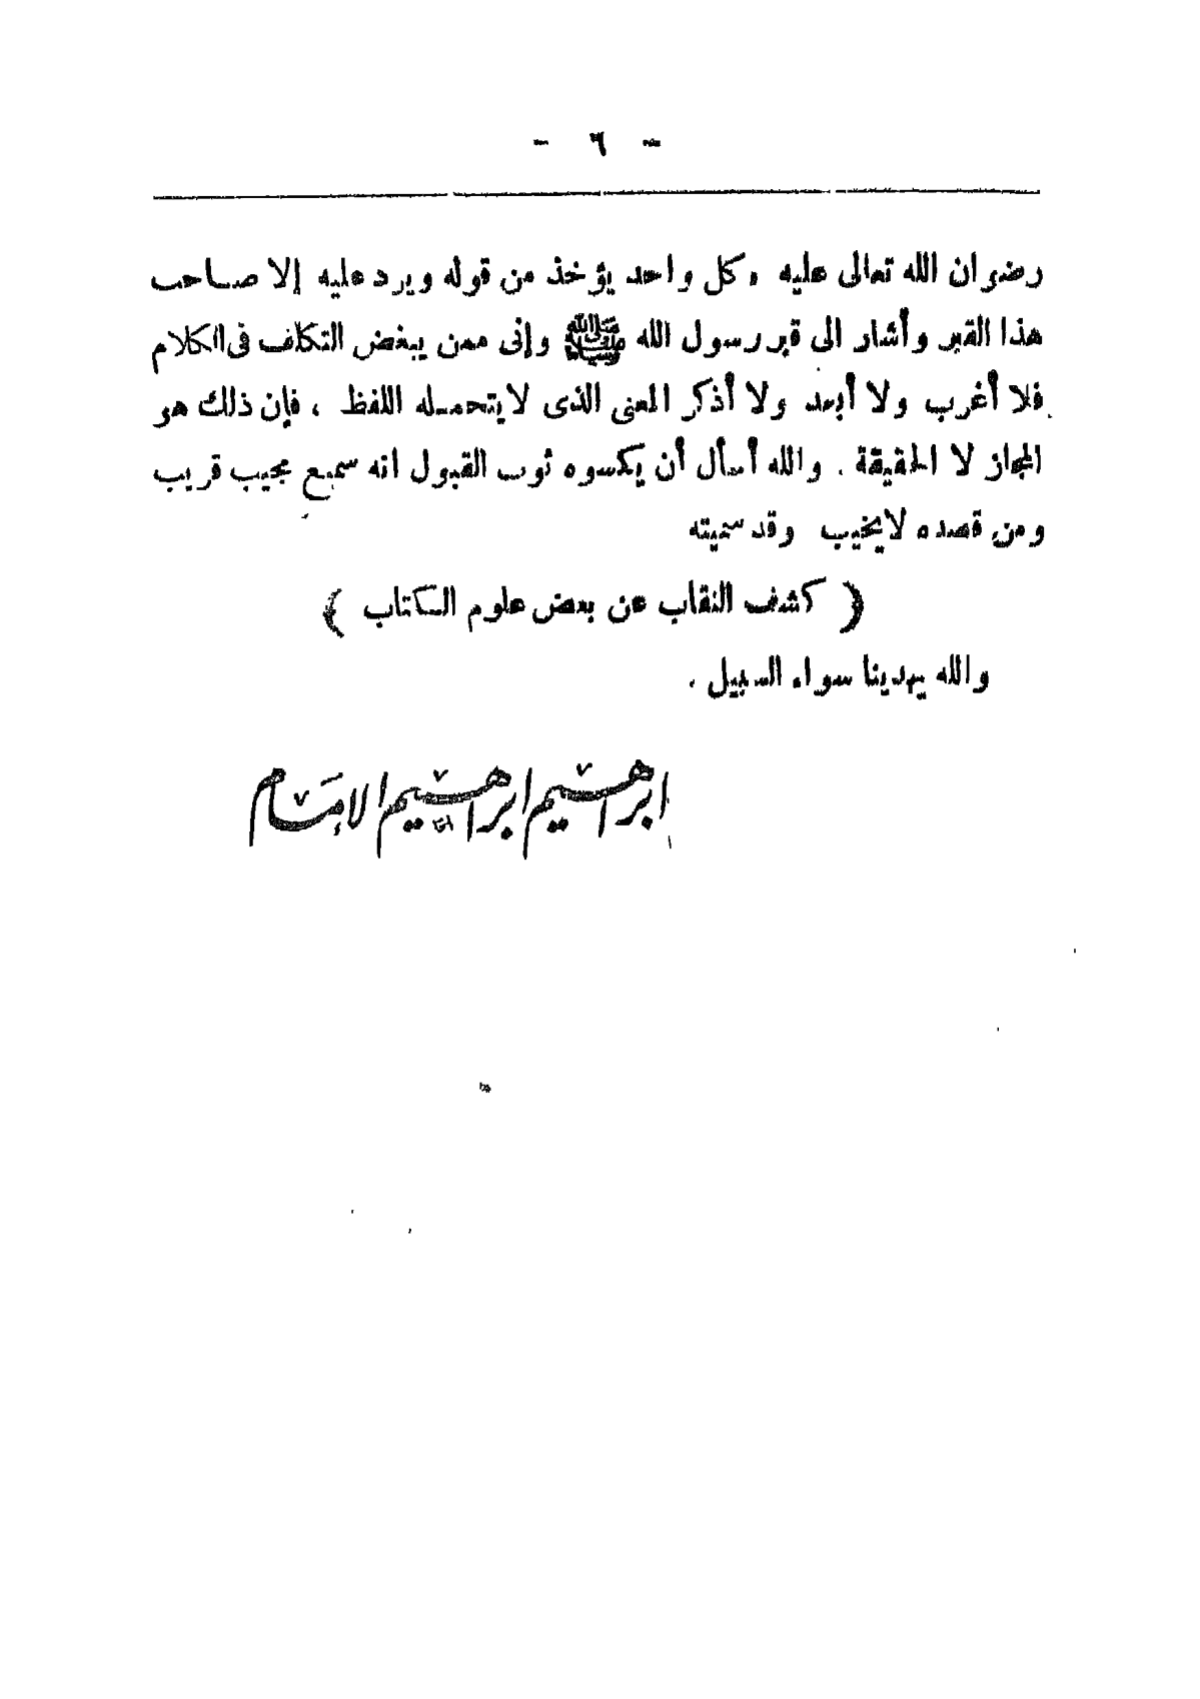 - ٦ -
رضوان الله تعالى عليه «كل واحد يؤخذ من قوله ويرد عليه إلا صاحب
هذا القبر وأشار الى قبر رسول الله ﷺ وإنى ممن يبغض التكلف فى الكلام
فلا أغرب ولا أبعد ولا أذكر المعنى الذى لا يتحمله اللفظ ، فإن ذلك هو
المجاز لا الحقيقة . والله أسأل أن يكسوه ثوب القبول انه سميع مجيب قريب
ومن قصده لا يخيب وقد سميته
﴿ كشف النقاب عن بعض علوم الكتاب ﴾
والله يهدينا سواء السبيل .
ابراهيم ابراهيم الإمام